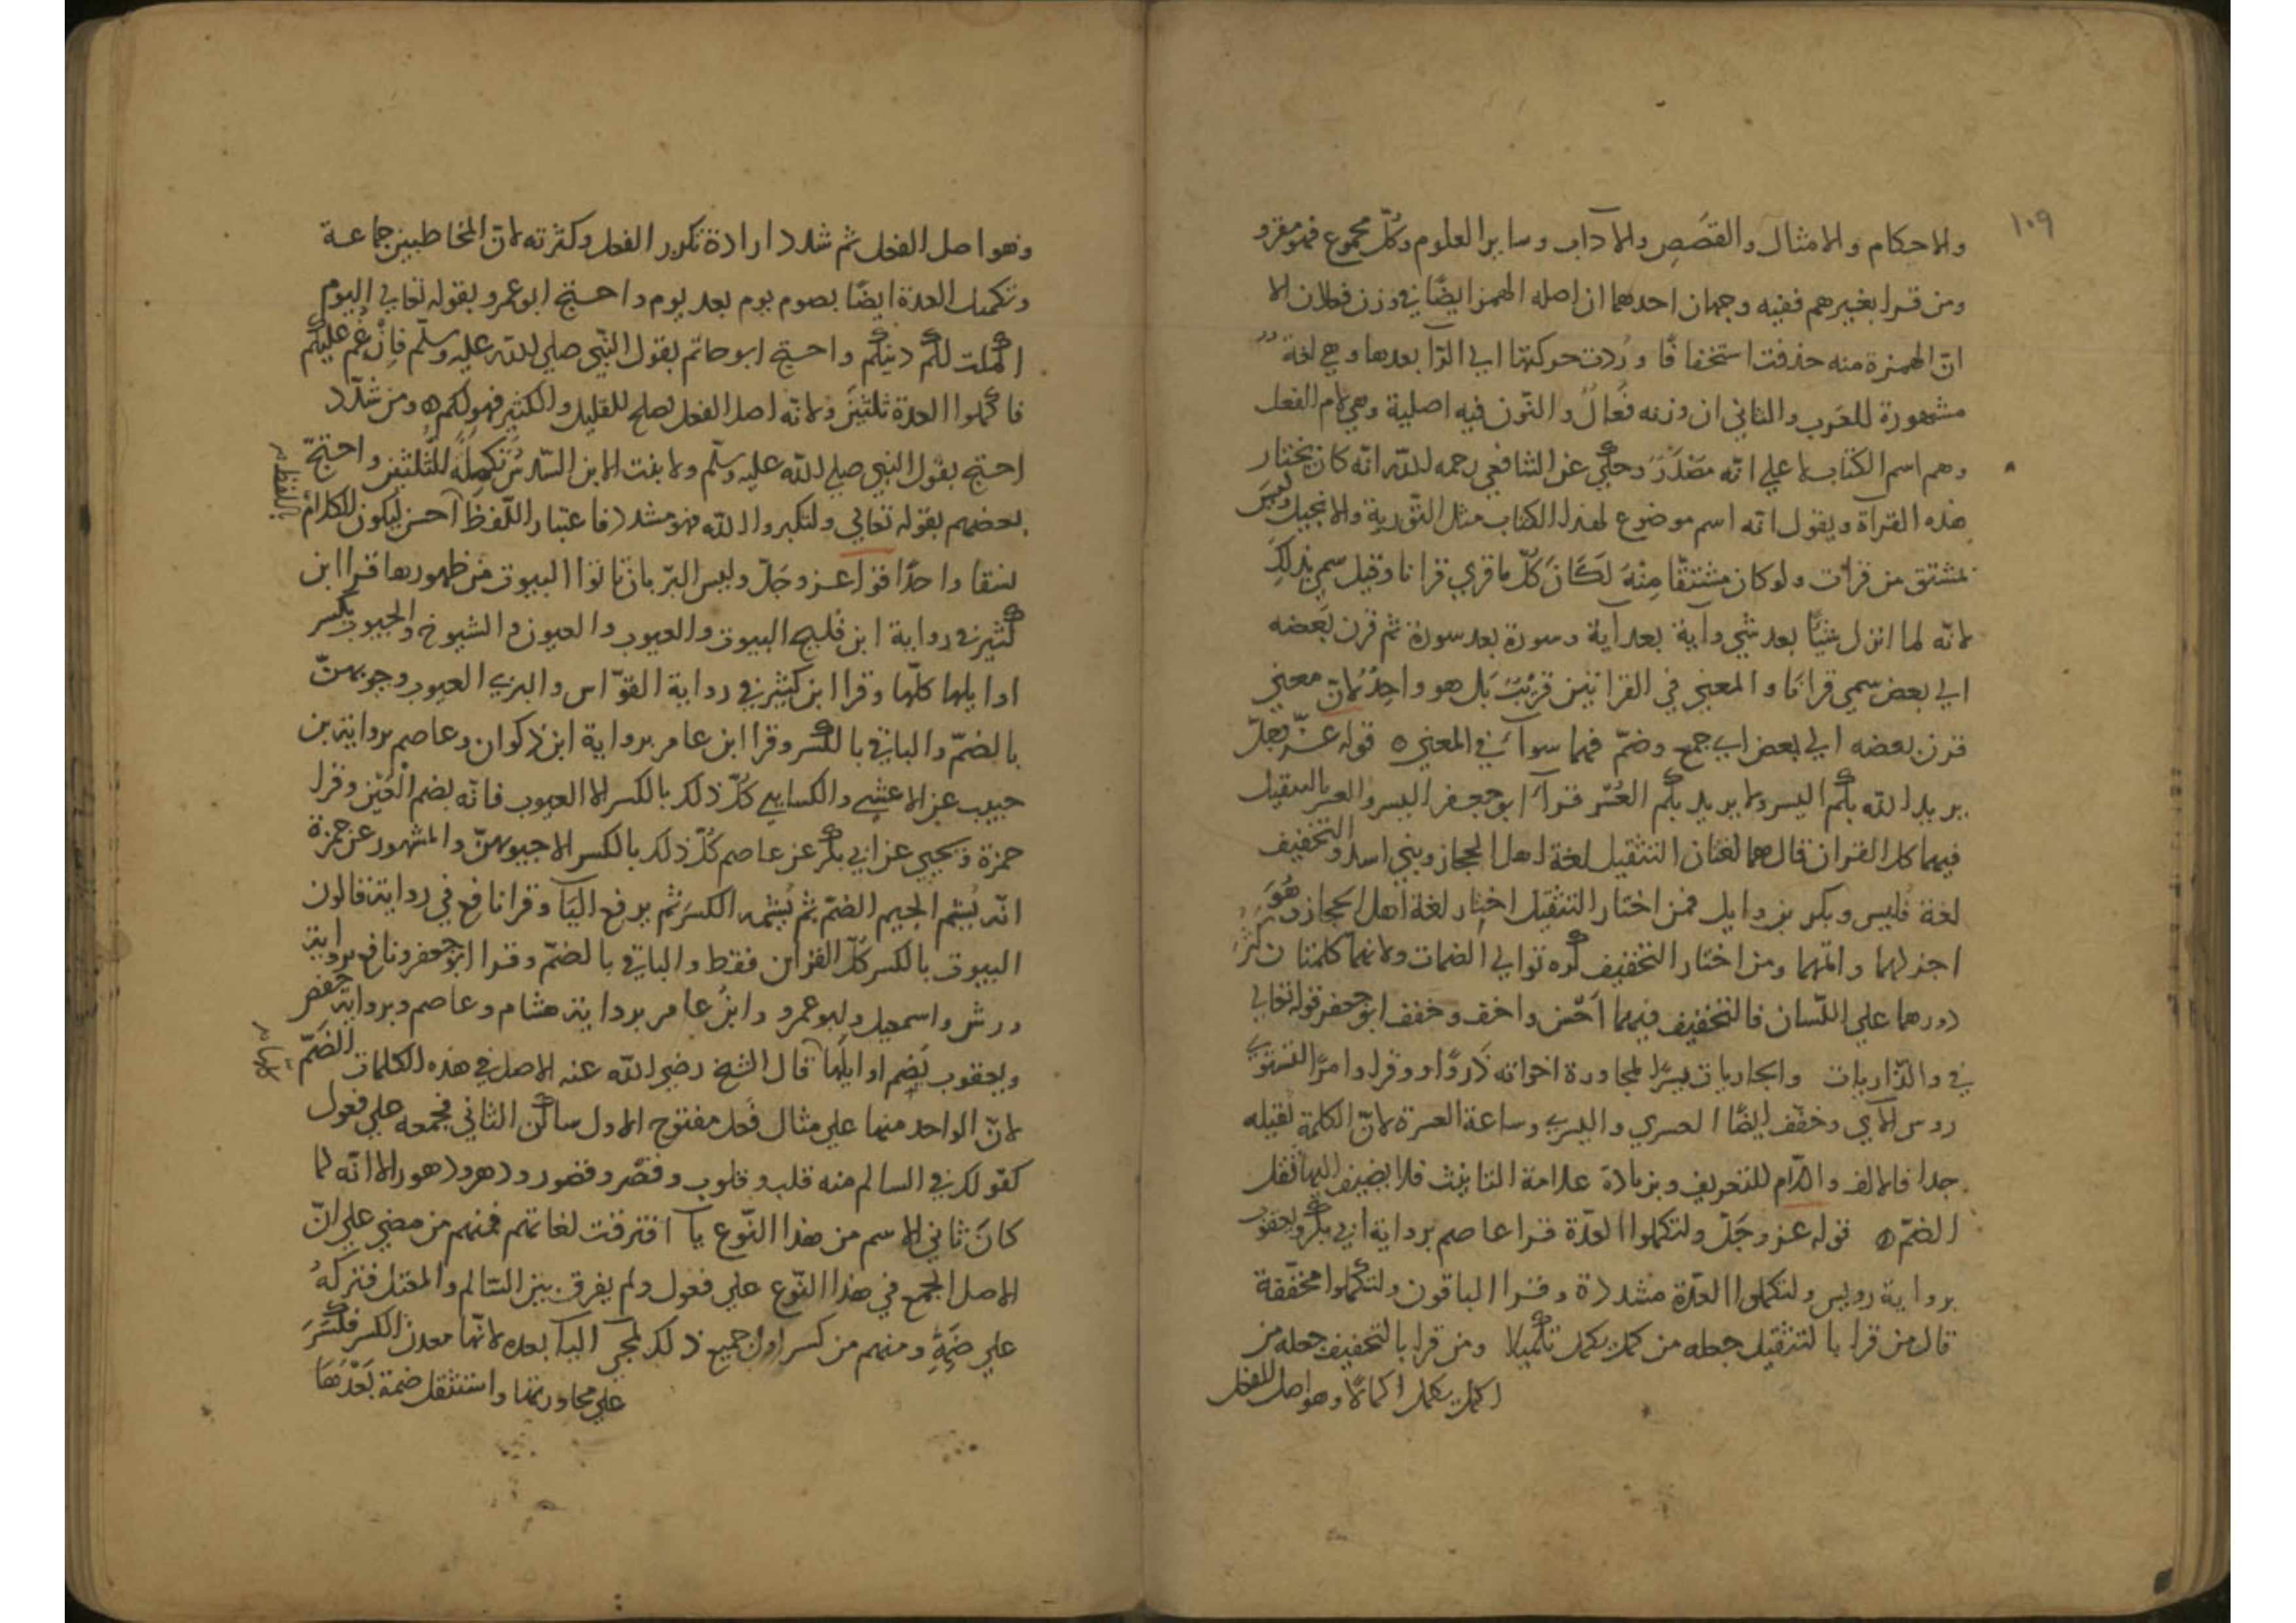 ١٠٩
والاحكام والامثال والقصَصِ والآداب وساير العلوم وكُلّ مجموع فهو مقرو
ومن قرا بغيرهم ففيه وجهان احدهما ان اصله الهمز ايضًا في وزن فعلان الا
انّ الهمزة منه حذفت استخفافًا ورُدت حركتها الي الرّا بعدها وهي لغة
مشهورة للعَرب والثاني ان وزنه فُعالٌ والنّون فيه اصلية وهي لام الفعل
وهم اسم الكتاب لا علي انّه مَصْدَرٌ وحكي عن الشافعي رحمه لله انّه كان يختار
هذه القرآة ويقول انه اسم موضوع لهذا الكتاب مثل التّورية والانجيل وليسَ
بمشتق من قرات ولو كان مشتقًّا مِنْهُ لَكَانَ كُلّ ما قري قرانا وقيل سمي بذلكِ
لانّه لما انزل شيًا بعد شي وآية بعد آية وسورة بعد سورة ثم قرن بَعضه
الي بعض سمي قرانًا والمعني في القراتين قَرِيْبٌ بَل هو واحِدٌ لانّ معني
قرن بعضه الي بعض اي جمع وضمّ فهما سوآ في المعني ٥ قوله عزّ وجلّ
يريد الله بكُم اليسر ولا يريد بكُم العُسْر قرآ ابو جعفر اليسر والعسر بالتثقيل
فيهما كل القران قال هما لغتان التثقيل لغة اهل الحجاز وبني اسد والتخفيف
لغة قيس وبكر بن وايل فمن اختار التثقيل اختار لغة اهل الحجاز وهُوَ
اجزلهما واتمهما ومن اختار التخفيف كره توالي الضمات ولانهما كلمتان كثُرَ
دورهما علي اللّسان فالتخفيف فيهما اَحْسن واخف وخفف ابو جعفر قوله تعالي
في والذّاريات والجاريات يسرًا لمجاورة اخواته ذروًا ووقرا وامرًا لتستوي
روس الآي وخفّف ايضًا العسري واليسري وساعة العسرة لانّ الكلمة ثقيله
جدا فالالف واللّام للتعريف وبزيادة علامة التانيث فلا يضيف اليها ثقل
الضمّ ٥ قوله عز وجَلّ ولتكملوا العدّة قرا عاصم برواية ابي بكر ويعقوب
برواية رويس ولتكملوا العدّة مشددة وقرا الباقون ولتكملوا مخفّفة
قال من قرا بالتثقيل جعله من كمل يكمل تكميلا ومن قرا بالتخفيف جعله من
اكمل يكمل اكمالًا وهو اصل الفعل
وهو اصل الفعل ثم شدد ارادة تكرير الفعل وكثرته لانّ المخاطبين جماعة
وتكميل العدة ايضًا بصوم يوم بعد يوم واحتج ابو عمرو بقوله تعالي اليوم
اكملت لكُم دينكم واحتج ابو حاتم بقول النّبي صلي لله عليه وسلّم فان غم عليكُم
فاكملوا العدة ثلثينَ ولانّه اصل الفعل يصلح للقليل والكثير فهو لكم ٥ ومن شدّد
احتج بقول النبي صلي لله عليه وسلّم ولا بنت الا ابن السّدسُ تكملةً للثلثين واحتجّ
بعضهم بقوله تعالي ولتكبروا الله فهو مشدد فاعتبار اللّفظ احسن ليكون الكلام
باللفظ
نسقا واحدًا قوله عز وجَلّ وليس البرّ بان تاتوا البيوت من ظهورها قرا ابن
كثير في رواية ابن فليح البيوت والغيوب والعيون والشيوخ والجيوب بكسر
اوايلها كلّها وقرا ابن كثير في رواية القوّاس والبزي الغيوب وجيوبهنّ
بالضمّ والباقي بالكسر وقرا ابن عامر برواية ابن ذكوان وعاصم برواية بن
حبيب عن الاعشي والكسايي كُلّ ذلك بالكسر الا الغيوب فانّه بضم الْغَيْن وقرا
حمزة ويحيي عن ابي بكر عن عاصم كُلّ ذلك بالكسر الا جيوبهنّ والمشهور عن حمزة
انّه يُشم الجيم الضمّ ثم يُشمه الكسرَ ثم يرفع اليَآ وقرا نافع في رواية قالون
البيوت بالكسر كُلّ القرآن فقط والباقي بالضمّ وقرا ابو جعفر ونافع برواية
ورش واسمعيل وابو عمرو وابنُ عامر برواية هشام وعاصم وبرواية حفص
ويعقوب بضم اوايلها قال الشيخ رضي الله عنه الاصل في هذه الكلمات الضمّ
لانّ الواحد منها علي مثال فَعْل مفتوح الاول ساكن الثاني فجمعه علي فعول
كقولك في السالم منه قلب وقلوب وقصْر وقصور ودهر ودهور الا انّه لما
كانَ ثاني الاسم من هذا النّوع يآ افترقت لغاتهم فمنهم من مضي علي انّ
الاصل الجمع في هذا النّوع علي فعول ولم يفرق بين السّالم والمعتل فتركهُ
علي ضمّةٍ ومنهم من كسر اول جميع ذلك لمجي اليآ بعده لانّها معدن الكسر فكسَرَ
علي مجاورتها واستثقل ضمة بَعْدَهَا